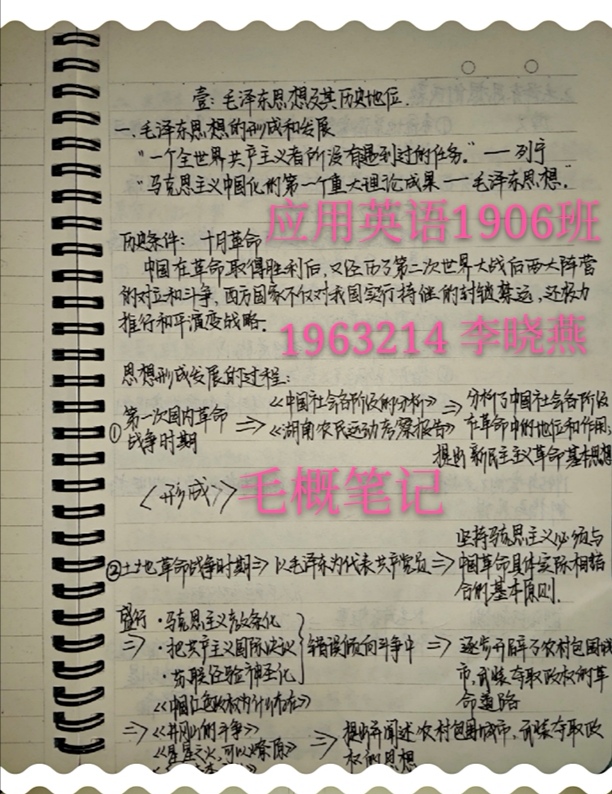 壹:毛泽东思想及其历史地位.
一.毛泽东思想的形成和发展
“一个全世界共产主义者所没有遇到过的任务。”——列宁
“马克思主义中国化的第一个重大理论成果——毛泽东思想。”
应用英语1906班
历史条件: 十月革命
中国在革命取得胜利后,又经历了第二次世界大战后两大阵营
的对立和斗争,西方国家不仅对我国实行持继的封锁禁运,还极力
推行和平演变战略.
1963214 李晓燕
思想形成发展的过程:
① 第一次国内革命战争时期 => 《中国社会各阶级的分析》《湖南农民运动考察报告》 => 分析了中国社会各阶级
在革命中的地位和作用;
提出新民主主义革命基本思想
《形成》
毛概笔记
坚持马克思主义必须与
②土地革命战争时期=> 以毛泽东为代表共产党员=> 中国革命具体实际相结
合的基本原则.
盛行 · 马克思主义教条化
=> · 把共产主义国际决议 错误倾向斗争中 => 逐步开辟了农村包围城
· 苏联经验神圣化 市,武装夺取政权的革
《中国红色政权为什么存在》 命道路
=> 《井冈山的斗争》
《星星之火,可以燎原》 => 提出并阐述农村包围城市,武装夺取政
权的思想